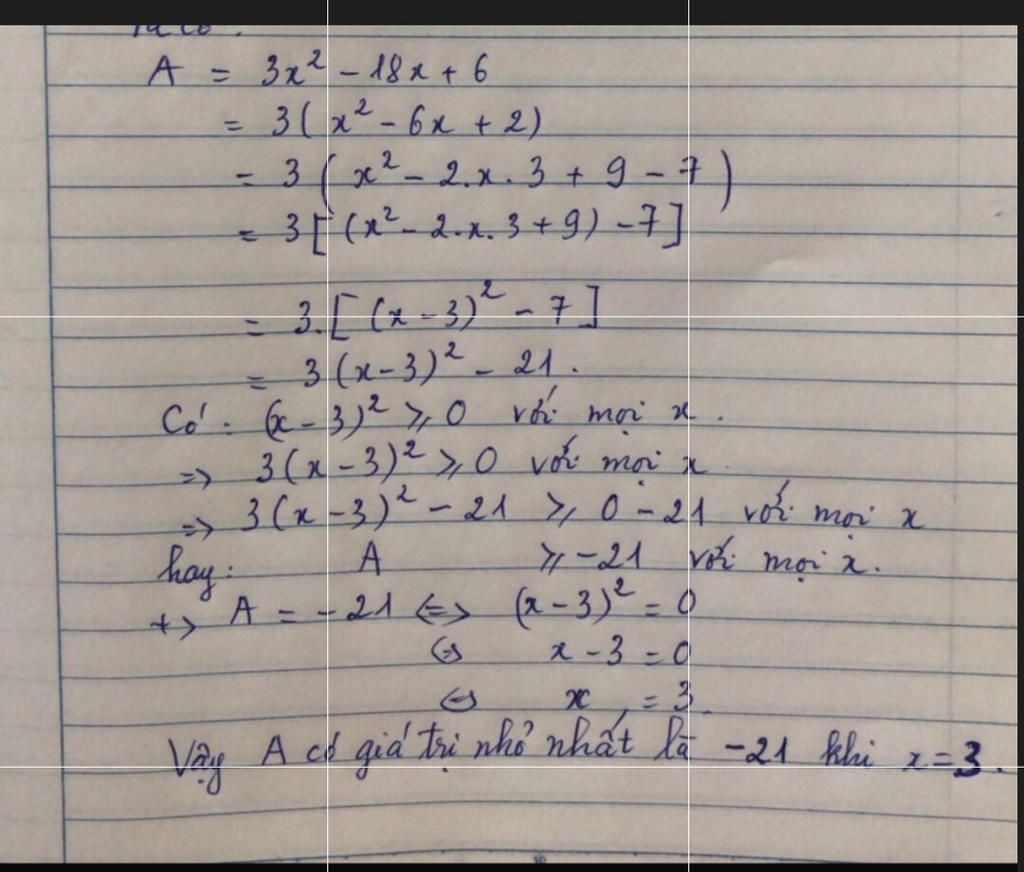 Ta có :
A = 3x² - 18x + 6
= 3( x² - 6x + 2)
= 3 ( x² - 2.x.3 + 9 - 7 )
= 3 [ (x² - 2.x.3 + 9) - 7 ]
= 3.[ (x - 3)² - 7 ]
= 3 (x - 3)² - 21 .
Có : (x - 3)² ≥ 0 với mọi x .
=> 3(x - 3)² ≥ 0 với mọi x
=> 3(x - 3)² - 21 ≥ 0 - 21 với mọi x
hay: A ≥ -21 với mọi x.
+> A = -21 <=> (x - 3)² = 0
<=> x - 3 = 0
<=> x = 3.
Vậy A có giá trị nhỏ nhất là -21 khi x = 3.